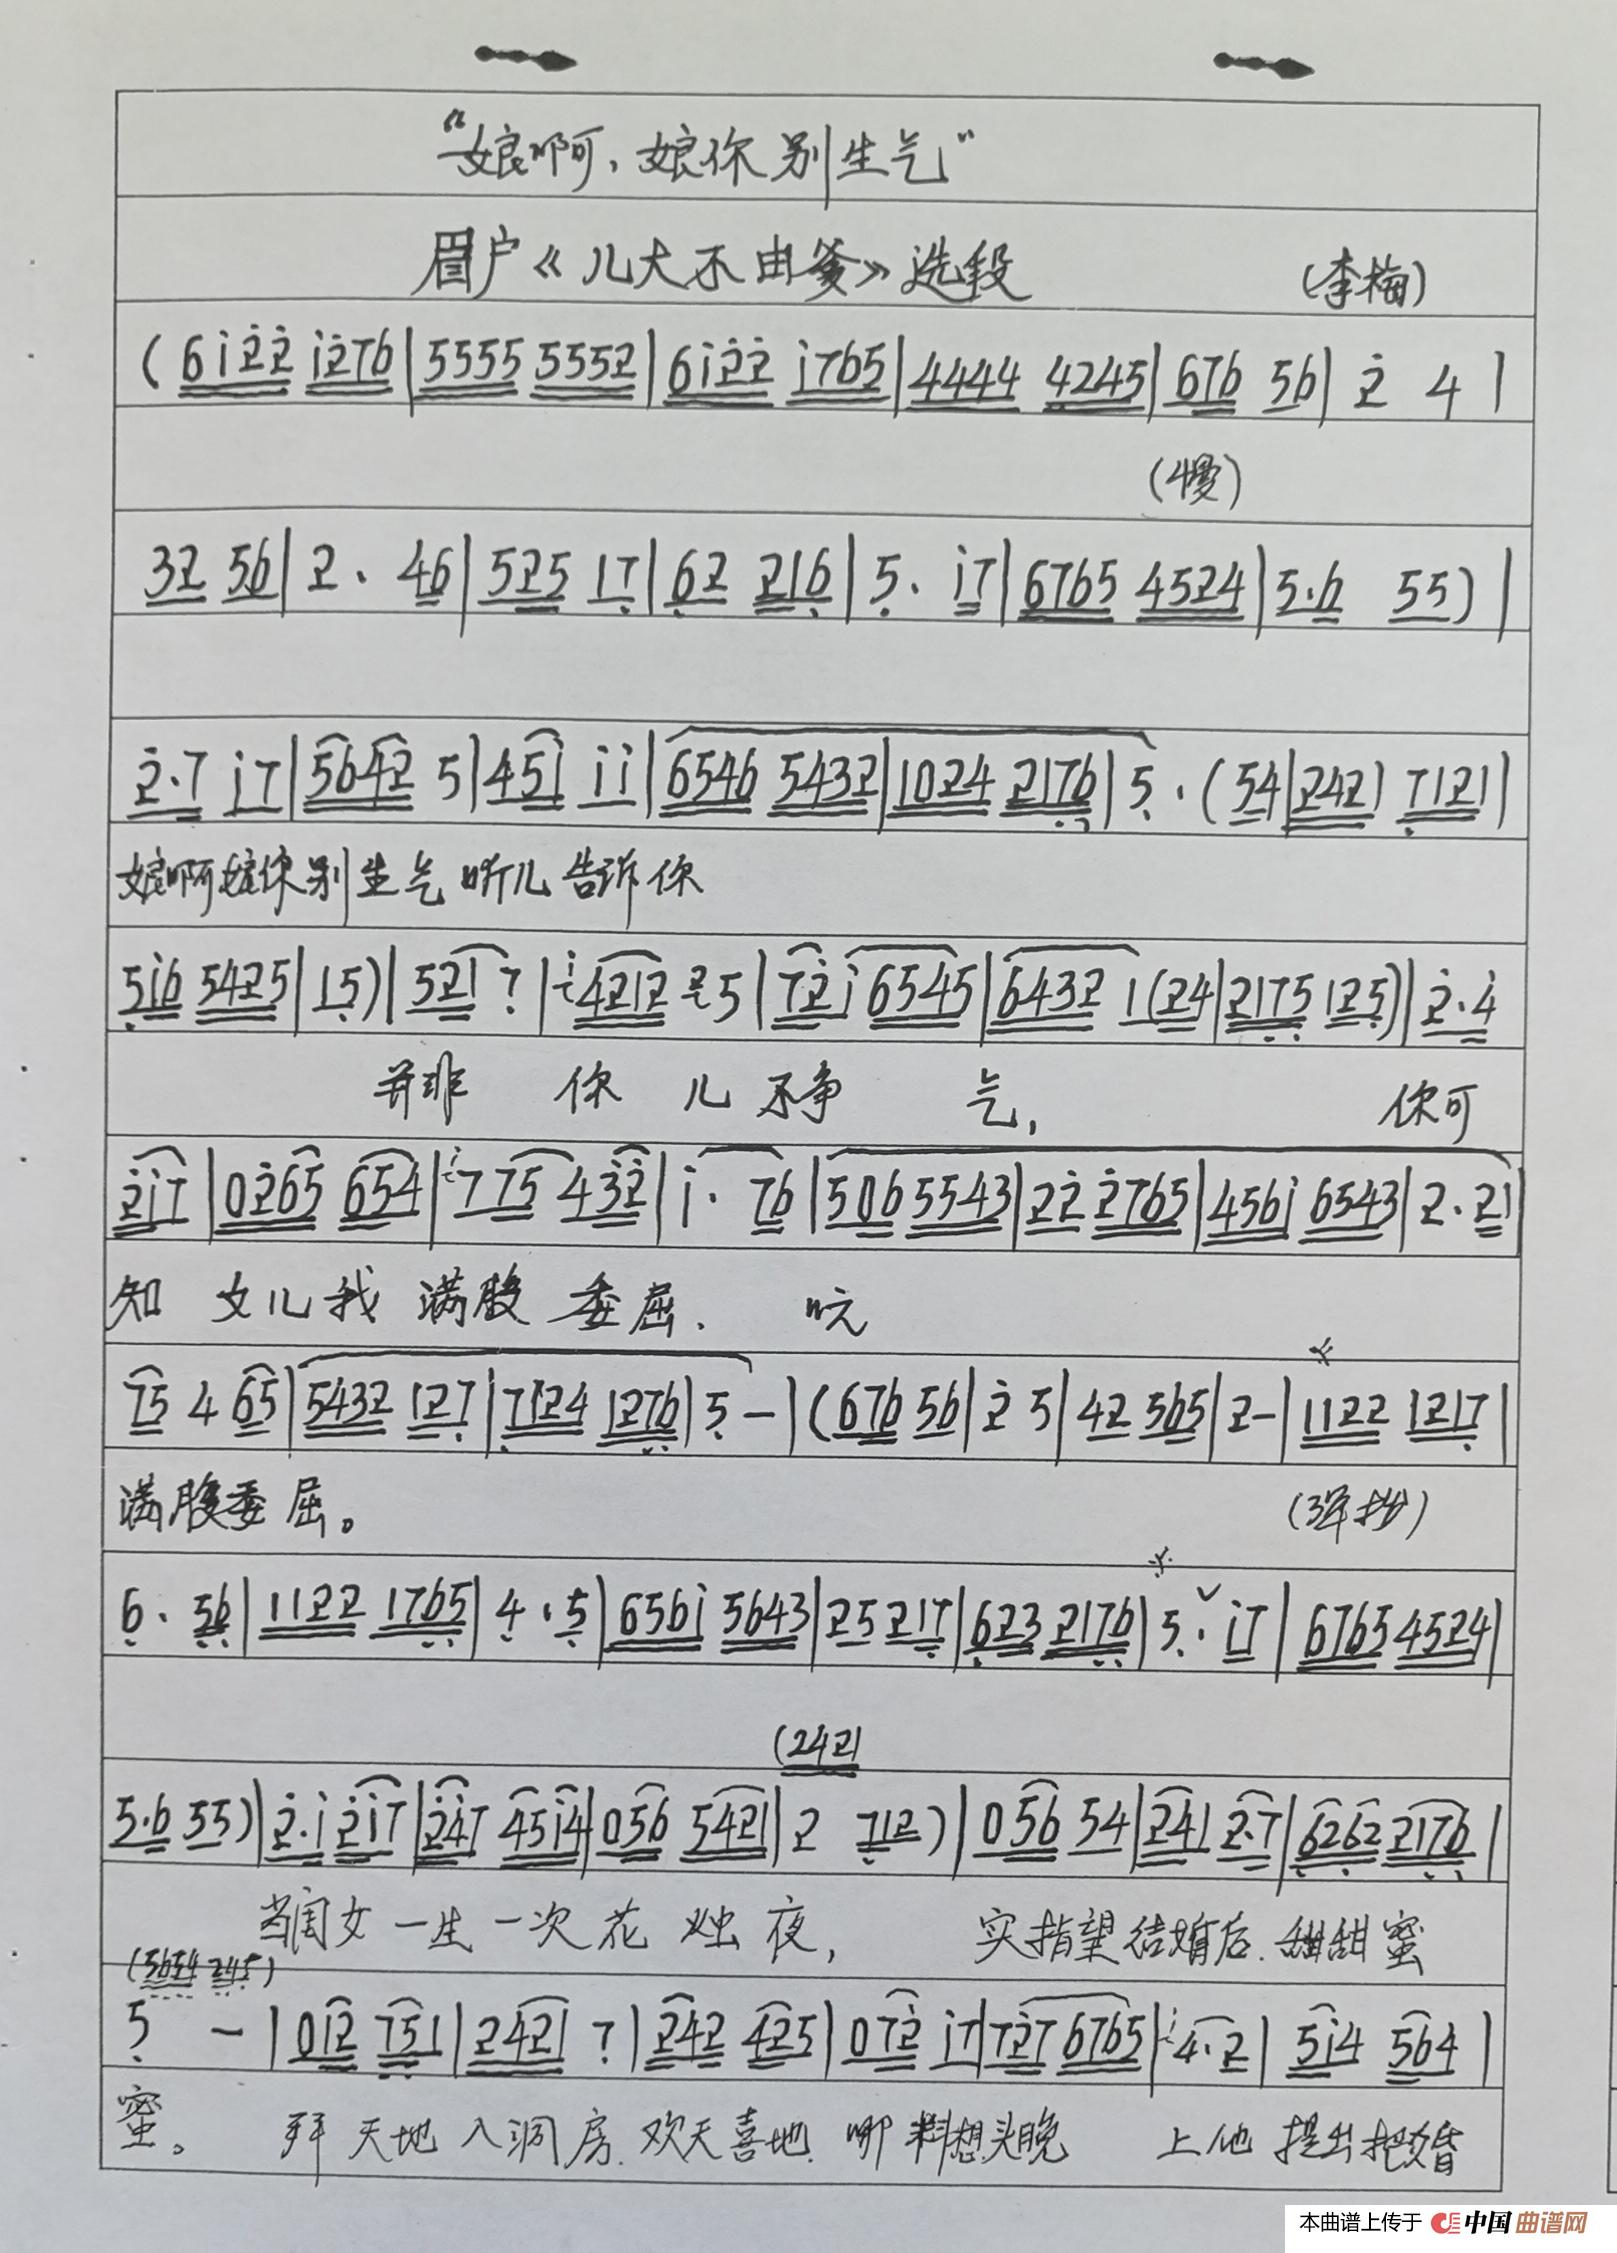 “娘啊,娘你别生气”
眉户《儿大不由爹》选段 (李梅)
(6i22 i276|5555 5552|6i22 i765|4444 4245|676 56|2 4|
(慢)
32 56|2· 46|525 17|62 216|5· i7|6765 4524|5·6 55)|
2·7 i7|5642 5|451 ii|6546 5432|1024 2176|5·(54|2421 7121|
娘啊娘你别生气听儿告诉你
5i6 5425|15)|521 7|i4212 25|72i 6545|6432 1(24|2175 125)|2·i
并非 你 儿 不争 气, 你可
2i7|0265 654|i7 75 432|i· 76|506 5543|22 2765|456i 6543|2·21
知 女儿我 满腹 委屈. 吭
75 4 65|5432 127|7124 1276|5 —|(676 56|2 5|42 565|2-|1122 1217|
满腹委屈。
6· 56|1122 1765|4·5|656i 5643|25 217|623 2176|5· i7|6765 4524|
(2421
5·6 55)|2·i 2i7|247 45i4|056 5421|2 712)|056 54|241 2·7|6262 2176|
当闺女一生一次花烛夜, 实指望结婚后.甜甜蜜
(5654 245)
5 —|012 751|2421 7|242 425|072 i7|727 6765|i4·2|5i4 564|
蜜。 拜天地入洞房.欢天喜地.哪料想头晚 上他提出把婚
本曲谱上传于 中国曲谱网